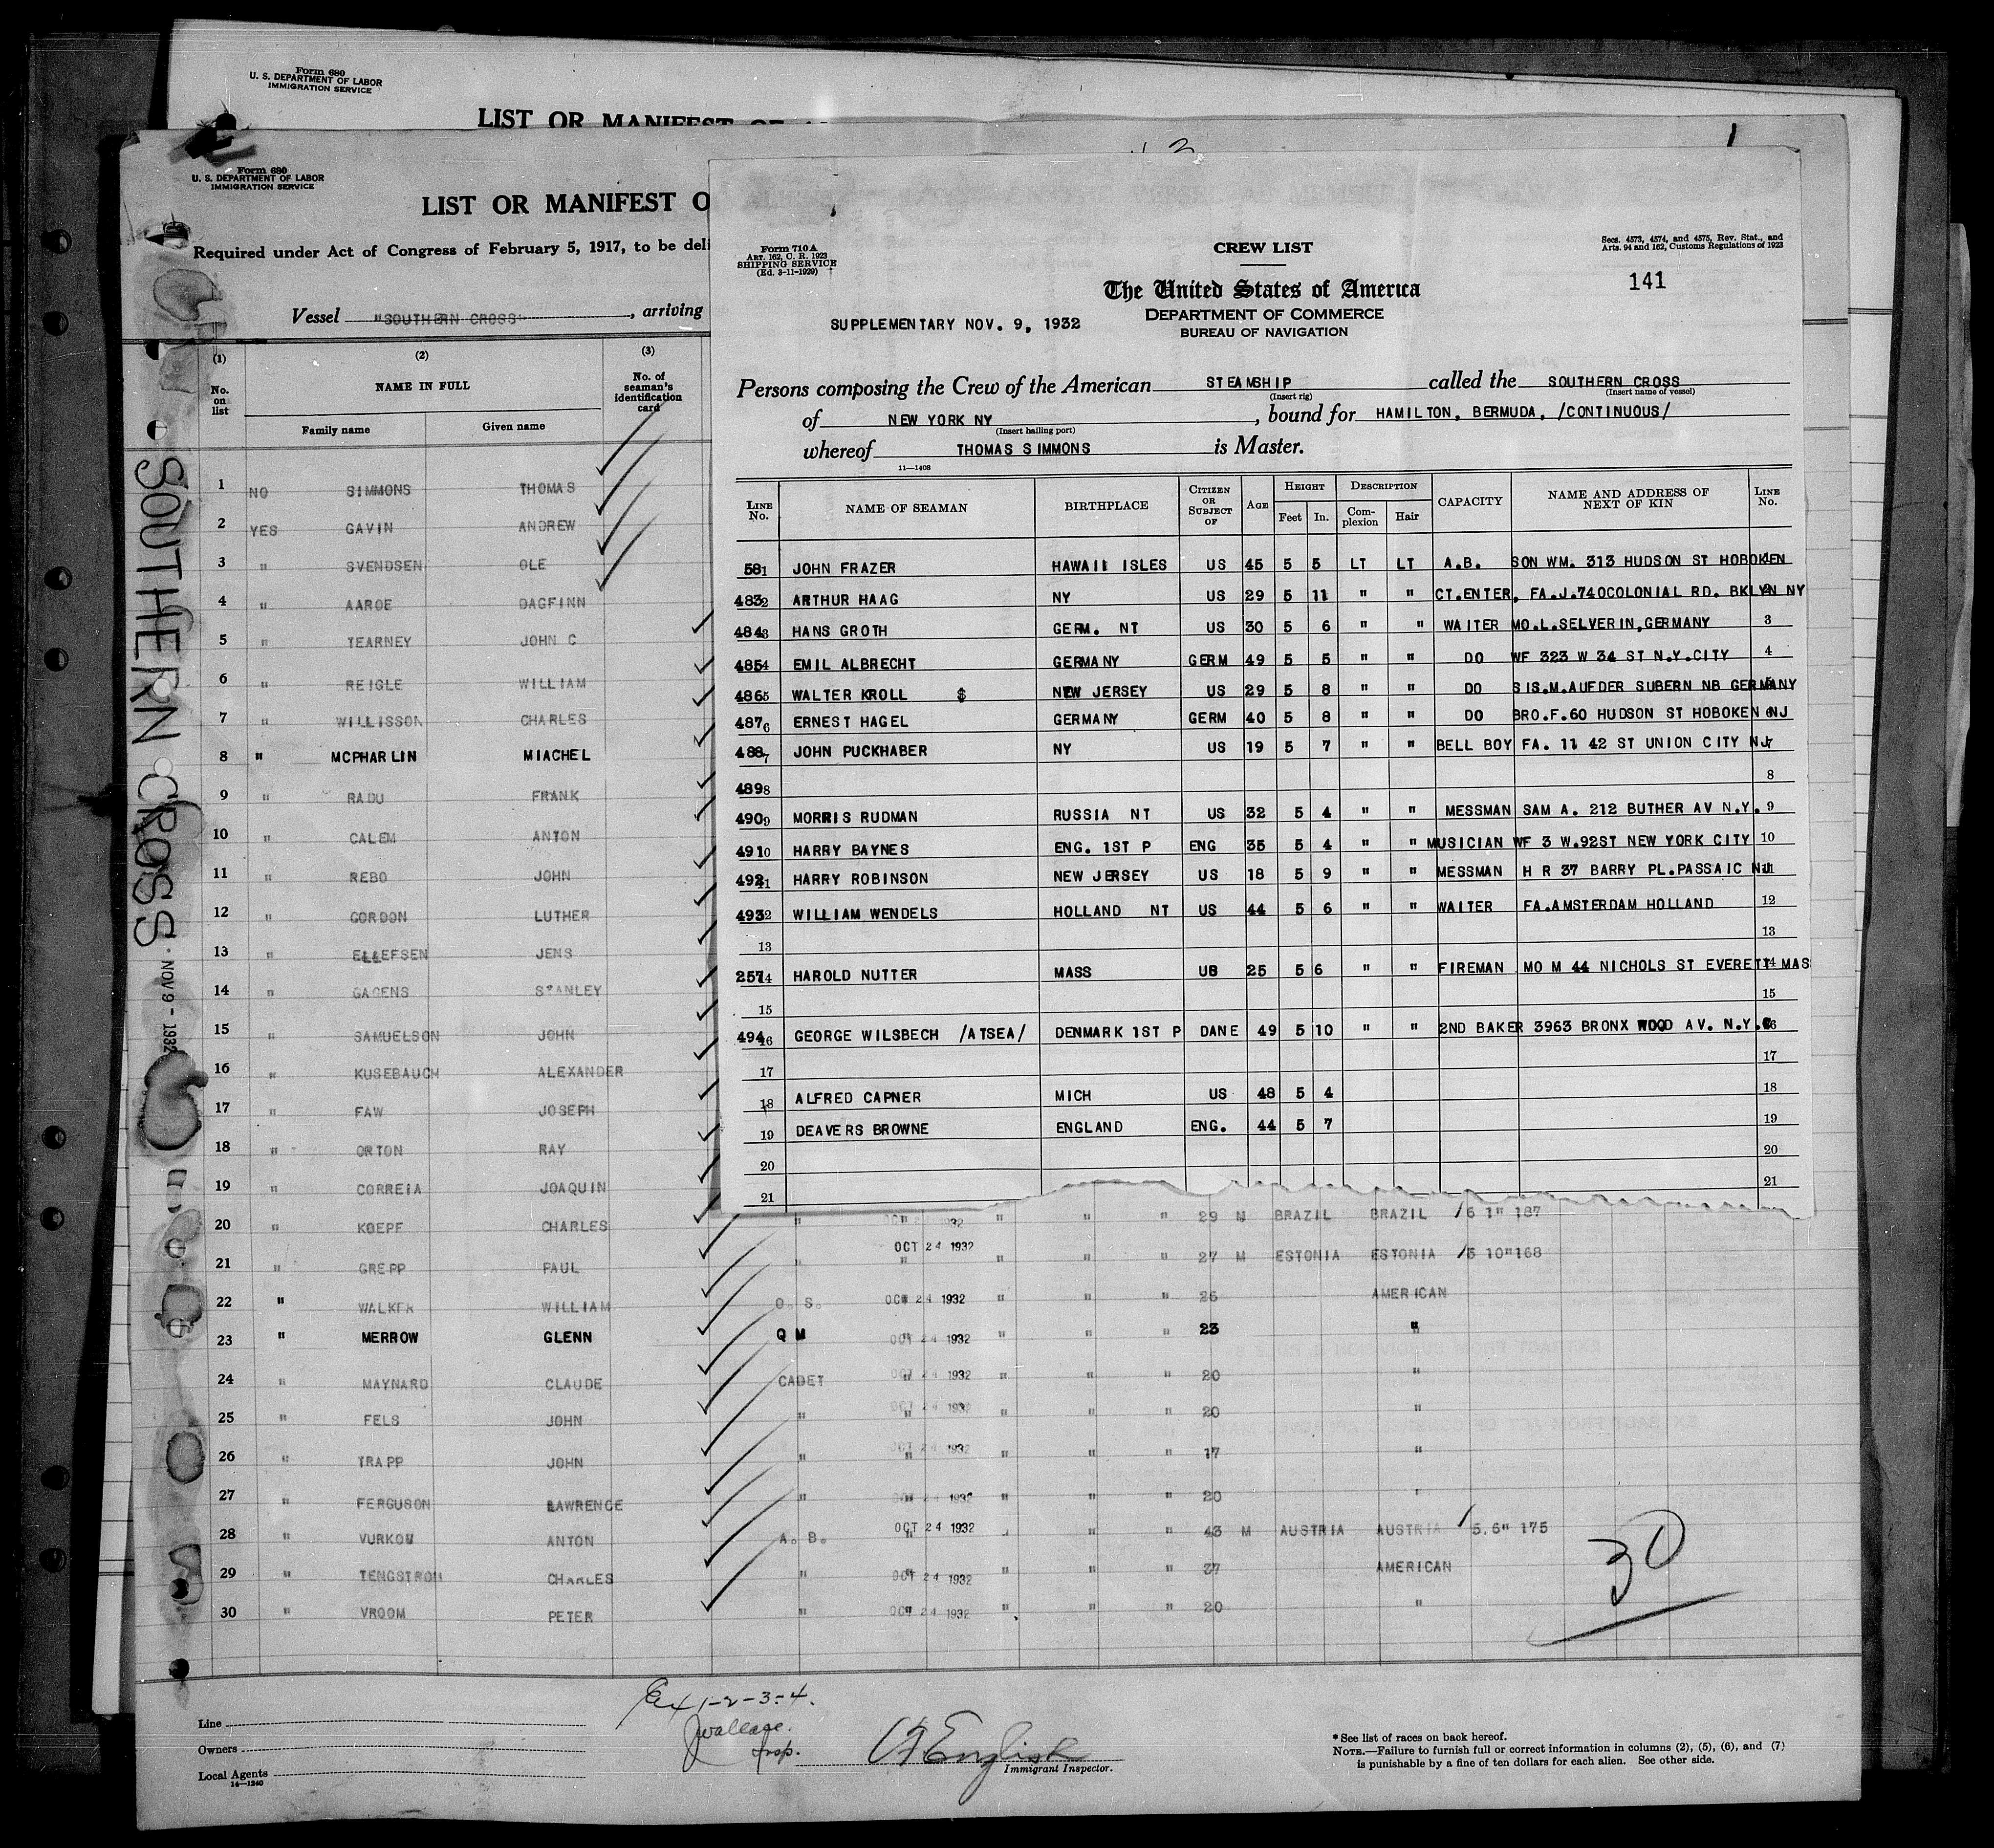 Form 680
U. S. DEPARTMENT OF LABOR
IMMIGRATION SERVICE
LIST OR MANIFEST OF
Form 680
U. S. DEPARTMENT OF LABOR
IMMIGRATION SERVICE
LIST OR MANIFEST O
Required under Act of Congress of February 5, 1917, to be deli
Vessel "SOUTHERN CROSS", arriving
(1) (2) (3)
No. on list NAME IN FULL No. of seaman's identification card
Family name Given name
1 NO SIMMONS THOMAS
2 YES GAVIN ANDREW
3 " SVENDSEN OLE
4 " AAROE DAGFINN
5 " TEARNEY JOHN C
6 " REIGLE WILLIAM
7 " WILLISSON CHARLES
8 " MCPHARLIN MIACHEL
9 " RADU FRANK
10 " CALEM ANTON
11 " REBO JOHN
12 " GORDON LUTHER
13 " ELLEFSEN JENS
14 " GAGENS STANLEY
15 " SAMUELSON JOHN
16 " KUSEBAUCH ALEXANDER
17 " FAW JOSEPH
18 " ORTON RAY
19 " CORREIA JOAQUIN
20 " KOEPF CHARLES " " " " " 29 M BRAZIL BRAZIL 6 1" 187
21 " GREPP PAUL " OCT 24 1932 " " " 27 M ESTONIA ESTONIA 5 10" 168
22 " WALKER WILLIAM O. S. OCT 24 1932 " " " 25 AMERICAN
23 " MERROW GLENN Q M OCT 24 1932 " " " 23 "
24 " MAYNARD CLAUDE CADET OCT 24 1932 " " " 20 "
25 " FELS JOHN " OCT 24 1932 " " " 20 "
26 " TRAPP JOHN " OCT 24 1932 " " " 17 "
27 " FERGUSON LAWRENCE " OCT 24 1932 " " " 20 "
28 " VURKOM ANTON A. B. OCT 24 1932 " " " 43 M AUSTRIA AUSTRIA 5.6" 175
29 " TENGSTROM CHARLES " OCT 24 1932 " " " 37 AMERICAN
30 " VROOM PETER " OCT 24 1932 " " " 20 "
30
SOUTHERN CROSS
NOV 9 - 1932
Form 710 A
Art. 162, C. R. 1923
SHIPPING SERVICE
(Ed. 3-11-1929)
CREW LIST
Secs. 4573, 4574, and 4575, Rev. Stat., and
Arts. 94 and 162, Customs Regulations of 1923
141
The United States of America
DEPARTMENT OF COMMERCE
BUREAU OF NAVIGATION
SUPPLEMENTARY NOV. 9, 1932
Persons composing the Crew of the American STEAMSHIP called the SOUTHERN CROSS
(Insert rig) (Insert name of vessel)
of NEW YORK NY, bound for HAMILTON, BERMUDA, /CONTINUOUS/
(Insert hailing port)
whereof THOMAS SIMMONS is Master.
11—1408
LINE No. NAME OF SEAMAN BIRTHPLACE CITIZEN OR SUBJECT OF AGE HEIGHT Feet In. DESCRIPTION Complexion Hair CAPACITY NAME AND ADDRESS OF NEXT OF KIN LINE No.
581 JOHN FRAZER HAWAII ISLES US 45 5 5 LT LT A.B. SON WM. 313 HUDSON ST HOBOKEN 1
483 2 ARTHUR HAAG NY US 29 5 11 " " CT.ENTER, FA.J.740COLONIAL RD. BKLYN NY 2
484 3 HANS GROTH GERM. NT US 30 5 6 " " WAITER MO.L.SELVERIN,GERMANY 3
485 4 EMIL ALBRECHT GERMANY GERM 49 5 5 " " DO WF 323 W 34 ST N.Y.CITY 4
486 5 WALTER KROLL $ NEW JERSEY US 29 5 8 " " DO SIS.M.AUFDER SUBERN NB GERMANY 5
487 6 ERNEST HAGEL GERMANY GERM 40 5 8 " " DO BRO.F.60 HUDSON ST HOBOKEN NJ 6
488 7 JOHN PUCKHABER NY US 19 5 7 " " BELL BOY FA. 11 42 ST UNION CITY NJ 7
489 8 8
490 9 MORRIS RUDMAN RUSSIA NT US 32 5 4 " " MESSMAN SAM A. 212 BUTHER AV N.Y. 9
491 10 HARRY BAYNES ENG. 1ST P ENG 35 5 4 " " MUSICIAN WF 3 W.92ST NEW YORK CITY 10
492 11 HARRY ROBINSON NEW JERSEY US 18 5 9 " " MESSMAN H R 37 BARRY PL.PASSAIC NJ 11
493 12 WILLIAM WENDELS HOLLAND NT US 44 5 6 " " WAITER FA.AMSTERDAM HOLLAND 12
13 13
257 14 HAROLD NUTTER MASS US 25 5 6 " " FIREMAN MO M 44 NICHOLS ST EVERETT MAS 14
15 15
494 16 GEORGE WILSBECH /ATSEA/ DENMARK 1ST P DANE 49 5 10 " " 2ND BAKER 3963 BRONX WOOD AV. N.Y. 16
17 17
18 ALFRED CAPNER MICH US 48 5 4 18
19 DEAVERS BROWNE ENGLAND ENG. 44 5 7 19
20 20
21 21
Ex 1-2-3-4.
J Wallace.
Insp.
English
Immigrant Inspector.
Line
Owners
Local Agents
14—1240
* See list of races on back hereof.
NOTE.—Failure to furnish full or correct information in columns (2), (5), (6), and (7)
is punishable by a fine of ten dollars for each alien. See other side.